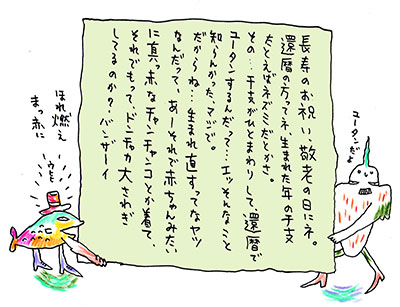 長寿のお祝い、敬老の日にネ。
還暦の方ってネ、生まれた年の干支
たとえばネズミだとかさ。
その…干支がひとまわりして、還暦で
ユータンするんだって…エッ、そんなこと
知らんかった、マジで。
だからね…生まれ直すってなヤツ
なんだって、あーそれで赤ちゃんみたい
に真っ赤なチャンチャンコとか着て、
それでもって、ドンチャカ大さわぎ
してるのか?、バンザーイ
ユータンだよ
ほれ燃え
まっ赤に
ウヒヒ